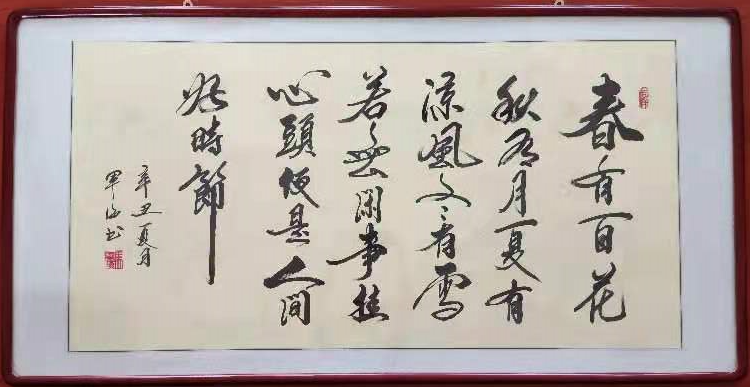 春有百花
秋有月夏有
涼風冬有雪
若無閑事挂
心頭便是人間
好時節
辛丑夏月
书